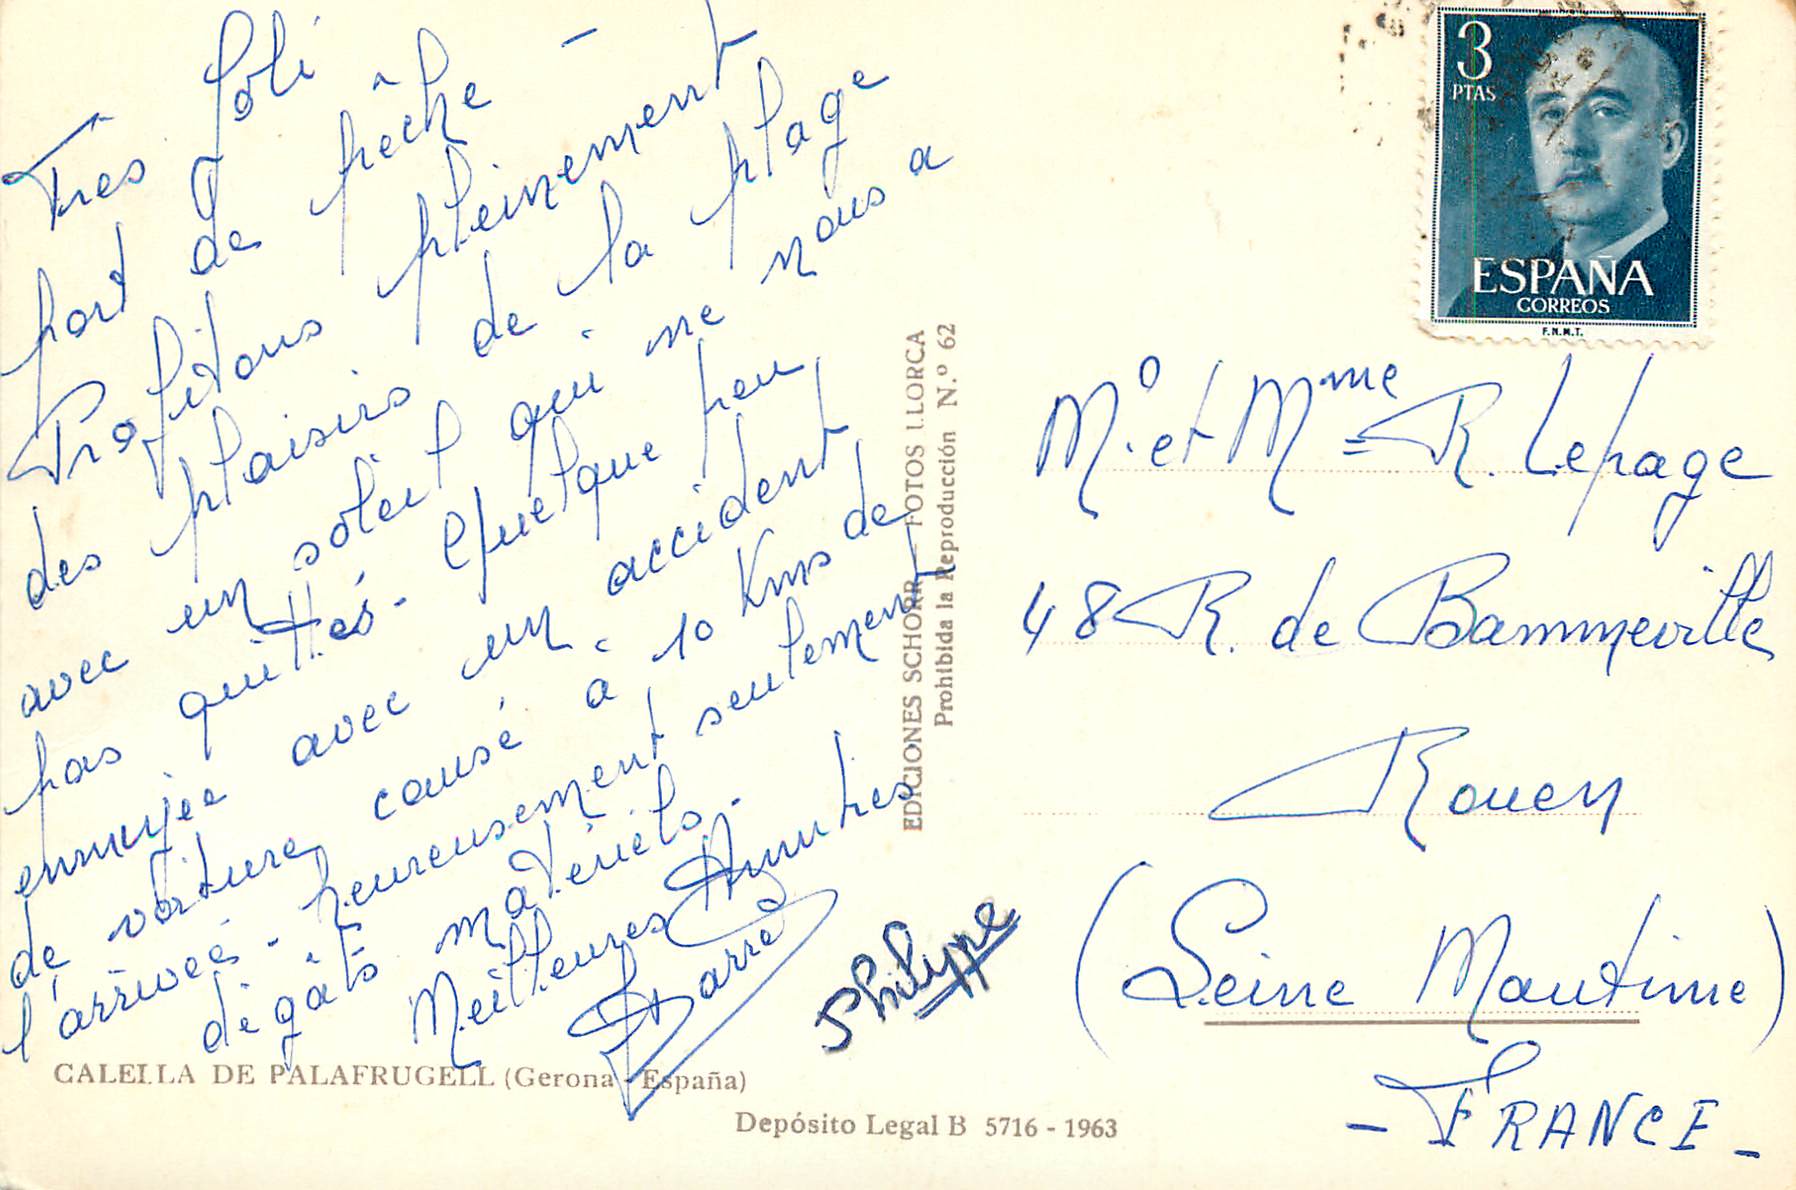 Très joli
port de pêche -
Profitons pleinement
des plaisirs de la plage
avec un soleil qui ne nous a
pas quittés - Quelque peu
ennuyée avec un accident
de voiture causé à 10 Kms de
l'arrivée - heureusement seulement
dégâts matériels -
Meilleures Amitiés
Barré
Philippe
CALELLA DE PALAFRUGELL (Gerona - España)
Depósito Legal B 5716 - 1963
EDICIONES SCHORR - FOTOS LLORCA
Prohibida la Reproducción N.º 62
3
PTAS
ESPAÑA
CORREOS
F.N.M.T.
Mr. et Mme R. Lepage
48 R. de Bammeville
Rouen
(Seine Maritime)
- FRANCE -